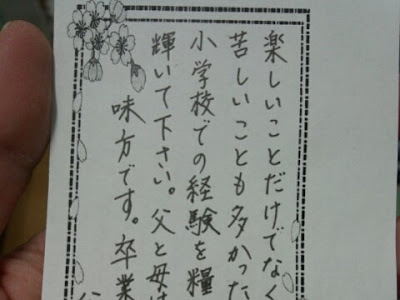 楽しいことだけでなく
苦しいことも多かった
小学校での経験を糧
輝いて下さい。父と母は
味方です。卒業